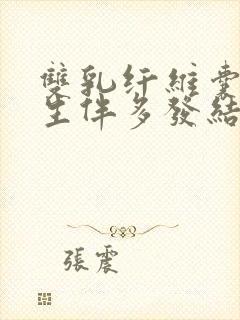 雙乳纤維囊
生伴多發結
張震